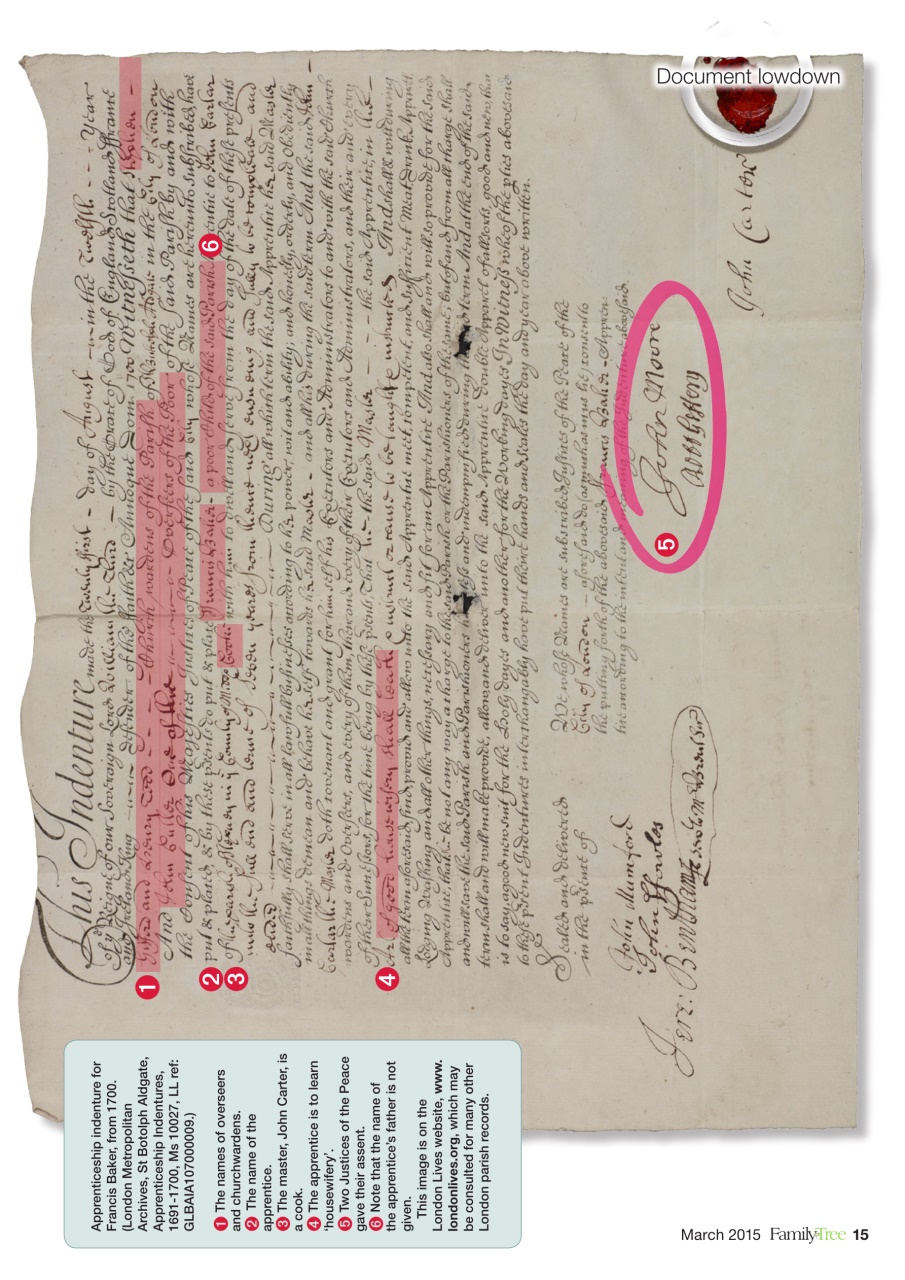 Document lowdown
This Indenture made the Twenty first day of August in the Twelfth Year
of the Reigne of our Soveraign Lord William the Third by the Grace of God of England Scotland France
and Ireland King Defender of the Faith &c Annoque Dom. 1700 Witnesseth that
and Henry Church wardens of the Parish of in the City of London
And John Overseers of the Poor of the said Parish by and with
the consent of his Majesties Justices of Peace of the said City whose Names are hereunto subscribed, have
put & placed, & by these presents do put & place Francis Baker a poor Child of the said Parish Apprentice to John Carter
of in ye County of Midds Cooke with him to dwell and serve from the day of the date of these presents
untill the full end and terme of Seven years from thence next ensuing and fully to be compleate and
ended During all which term the said Apprentice his said Master
faithfully shall serve in all lawfull businesses according to power, wit and ability; and honestly, orderly, and obediently
in all things demean and behave self towards his said Master and all his during the said term And the said John
Carter the Master doth covenant and grant for himself his Executors and Administrators to and with the said Church
wardens and Overseers, and every of them, their and every of their Executors and Administrators, and their and every
of their Successors, for the time being by these presents, That he the said Master the said Apprentice, in the
Art of good housewifery shall teach & instruct or cause to be taught & instructed And shall will during
all the term aforesaid find, provid and allow unto the said Apprentice meet, competent, and sufficient Meat, Drink, Apparel,
Lodging, Washing and all other things, necessary and fit for an Apprentice. And also shall and will so provide for the said
Apprentice, that be not any way a charge to the said Parish or the Parishioners of the same; but of and from all charge shall
and will save the said Parish and Parishioners harmless and indempnified during the said term. And at the end of the said
term, shall and will make, provide, allow, and deliver unto the said Apprentice double Apparel of all sorts, good and new, that
is to say, a good new suit for the Holy-dayes and another for the Working-dayes In Witness whereof the parties abovesaid
to these present Indentures interchangably have put their hands and seales the day and year above written.
Sealed and delivered
in the presence of
John Mumford
John Howles
Jere: Bentham
We whose Names are subscribed Justices of the Peace of the
City of London aforesaid do (as much as in us lie) consent to
the putting forth of the abovesaid Francis Baker Appren-
tice according to the intent and meaning of the Indenture abovesaid.
John Moore
John Carter
1
2
3
4
5
6
Apprenticeship indenture for
Francis Baker, from 1700.
(London Metropolitan
Archives, St Botolph Aldgate,
Apprenticeship Indentures,
1691-1700, Ms 10027, LL ref:
GLBAIA107000009.)
1 The names of overseers
and churchwardens.
2 The name of the
apprentice.
3 The master, John Carter, is
a cook.
4 The apprentice is to learn
'housewifery'.
5 Two Justices of the Peace
gave their assent.
6 Note that the name of
the apprentice's father is not
given.
This image is on the
London Lives website, www.
londonlives.org, which may
be consulted for many other
London parish records.
March 2015 FamilyTree 15